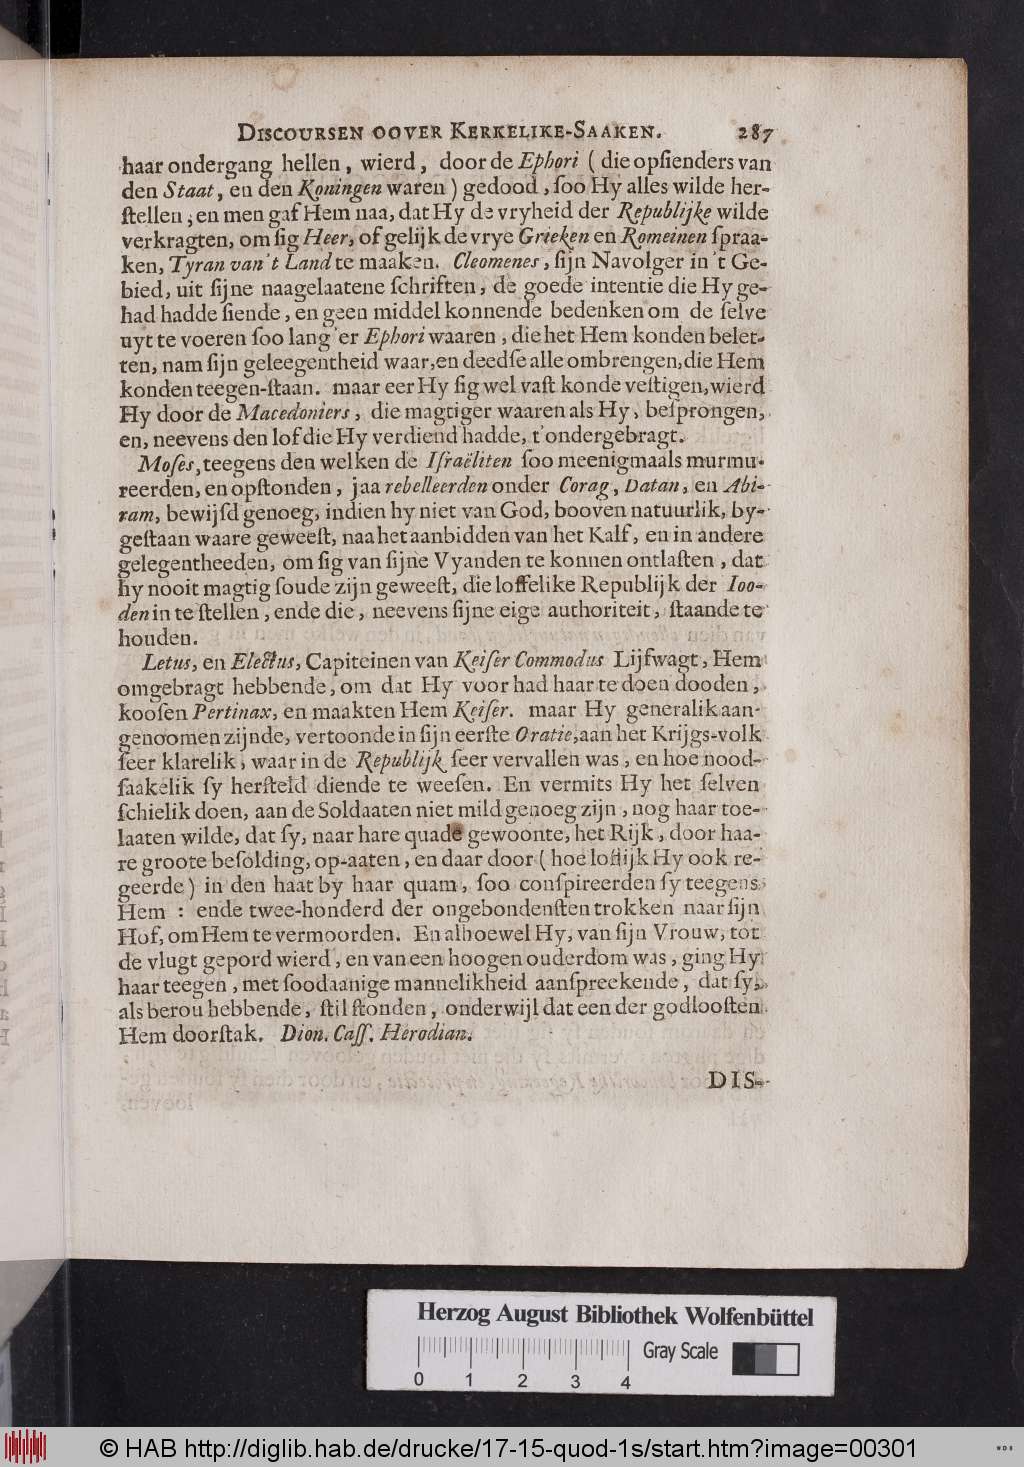 DISCOURSEN OOVER KERKELIKE-SAAKEN. 287
haar ondergang hellen, wierd, door de Ephori (die opſienders van
den Staat, en den Koningen waren) gedood, ſoo Hy alles wilde her-
ſtellen; en men gaf Hem naa, dat Hy de vryheid der Republijke wilde
verkragten, om ſig Heer, of gelijk de vrye Grieken en Romeinen ſpraa-
ken, Tyran van't Land te maaken. Cleomenes, ſijn Navolger in 't Ge-
bied, uit ſijne naagelaatene ſchriften, de goede intentie die Hy ge-
had hadde ſiende, en geen middel konnende bedenken om de ſelve
uyt te voeren ſoo lang 'er Ephori waaren, die het Hem konden belet-
ten, nam ſijn geleegentheid waar, en deedſe alle ombrengen, die Hem
konden teegen-ſtaan. maar eer Hy ſig wel vaſt konde veſtigen, wierd
Hy door de Macedoniers, die magtiger waaren als Hy, beſprongen,
en, neevens den lof die Hy verdiend hadde, t'ondergebragt.
Moſes, teegens den welken de Iſraëliten ſoo meenigmaals murmu-
reerden, en opſtonden, jaa rebelleerden onder Corag, Datan, en Abi-
ram, bewijſd genoeg, indien hy niet van God, booven natuurlik, by-
geſtaan waare geweeſt, naa het aanbidden van het Kalf, en in andere
gelegentheeden, om ſig van ſijne Vyanden te konnen ontlaſten, dat
hy nooit magtig ſoude zijn geweeſt, die loffelike Republijk der Ioo-
den in te ſtellen, ende die, neevens ſijne eige authoriteit, ſtaande te
houden.
Letus, en Electus, Capiteinen van Keiſer Commodus Lijfwagt, Hem
omgebragt hebbende, om dat Hy voor had haar te doen dooden,
kooſen Pertinax, en maakten Hem Keiſer. maar Hy generalik aan-
genoomen zijnde, vertoonde in ſijn eerſte Oratie, aan het Krijgs-volk
ſeer klarelik, waar in de Republijk ſeer vervallen was, en hoe nood-
ſaakelik ſy herſteld diende te weeſen. En vermits Hy het ſelven
ſchielik doen, aan de Soldaaten niet mild genoeg zijn, nog haar toe-
laaten wilde, dat ſy, naar hare quade gewoonte, het Rijk, door haa-
re groote beſolding, op-aaten, en daar door (hoe loflijk Hy ook re-
geerde) in den haat by haar quam, ſoo conſpireerden ſy teegens
Hem : ende twee-honderd der ongebondenſten trokken naar ſijn
Hof, om Hem te vermoorden. En alhoewel Hy, van ſijn Vrouw, tot
de vlugt gepord wierd, en van een hoogen ouderdom was, ging Hy
haar teegen, met ſoodaanige mannelikheid aanſpreekende, dat ſy,
als berou hebbende, ſtil ſtonden, onderwijl dat een der godlooſten
Hem doorſtak. Dion. Caſſ. Herodian.
DIS-
Herzog August Bibliothek Wolfenbüttel
Gray Scale
0 1 2 3 4
© HAB http://diglib.hab.de/drucke/17-15-quod-1s/start.htm?image=00301